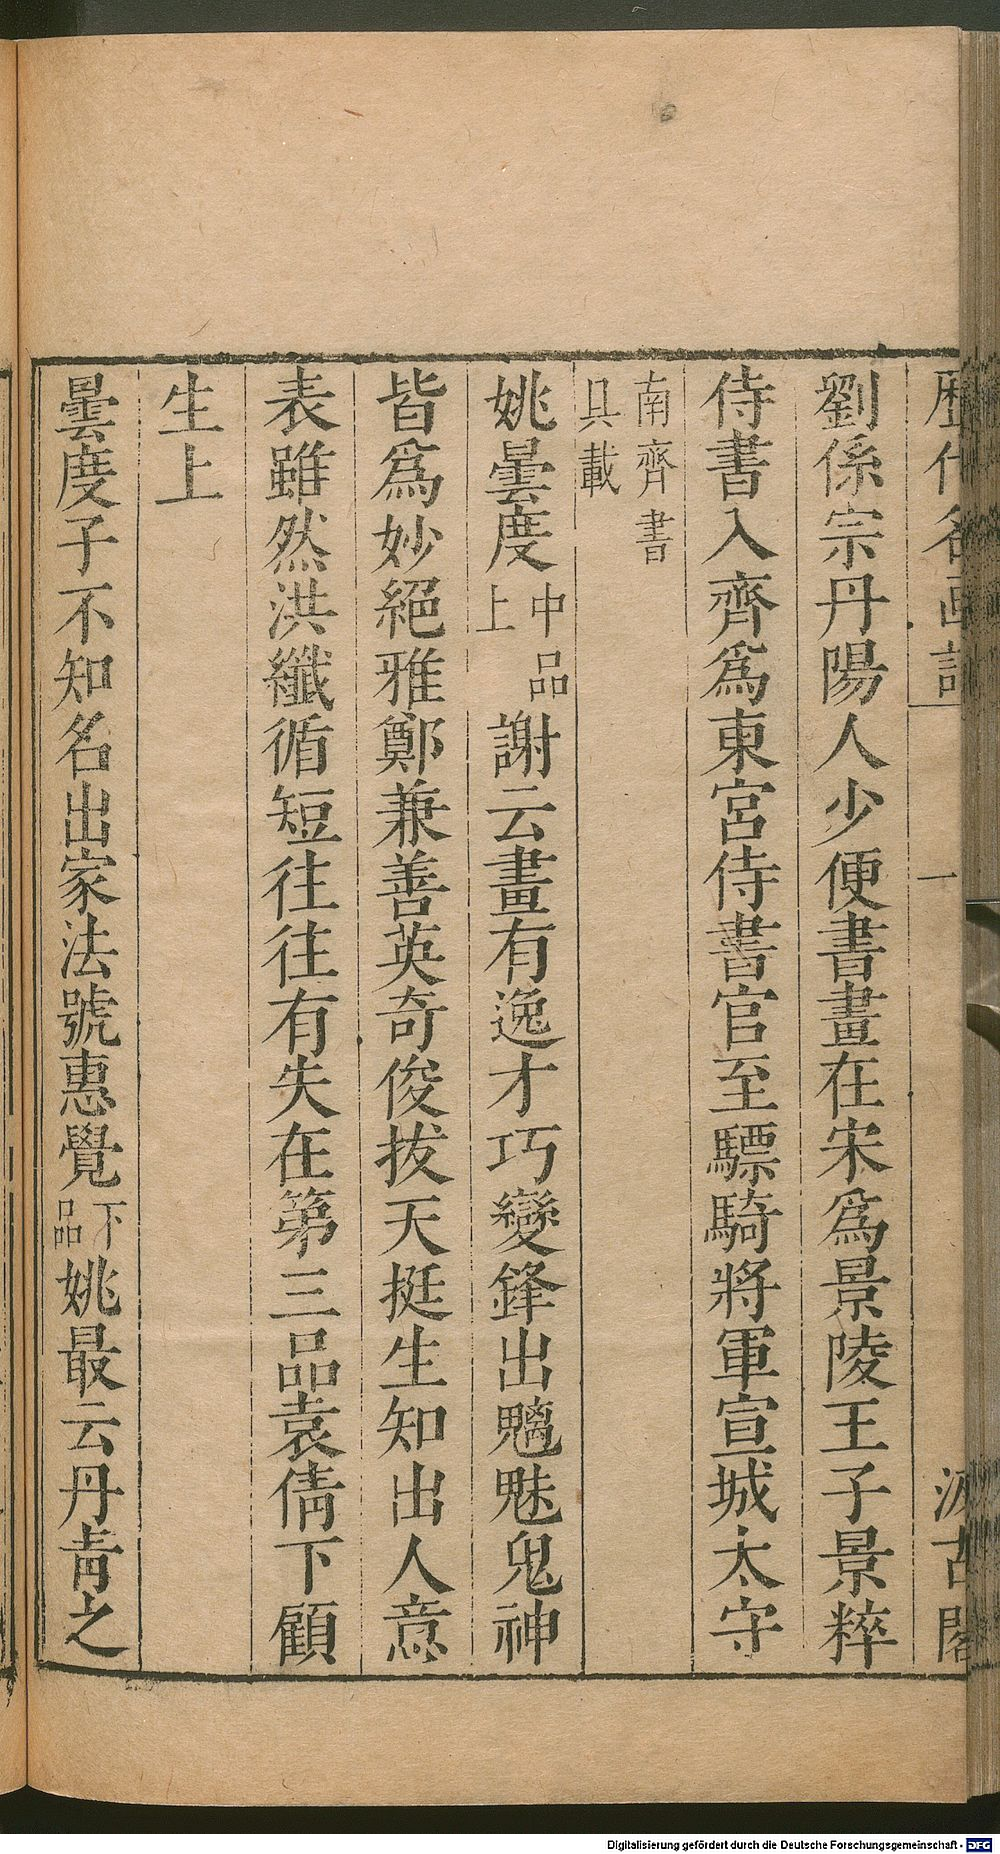 歷代名画記
一
汲古閣
劉係宗丹陽人少便書畫在宋爲景陵王子景粹
侍書入齊爲東宮侍書官至驃騎將軍宣城太守
南齊書
具載
姚曇度中品上謝云畫有逸才巧變鋒出魑魅鬼神
皆爲妙絕雅鄭兼善英奇俊拔天挺生知出人意
表雖然洪纖循短往往有失在第三品袁倩下顧
生上
曇度子不知名出家法號惠覺下品姚最云丹青之
Digitalisierung gefördert durch die Deutsche Forschungsgemeinschaft - DFG